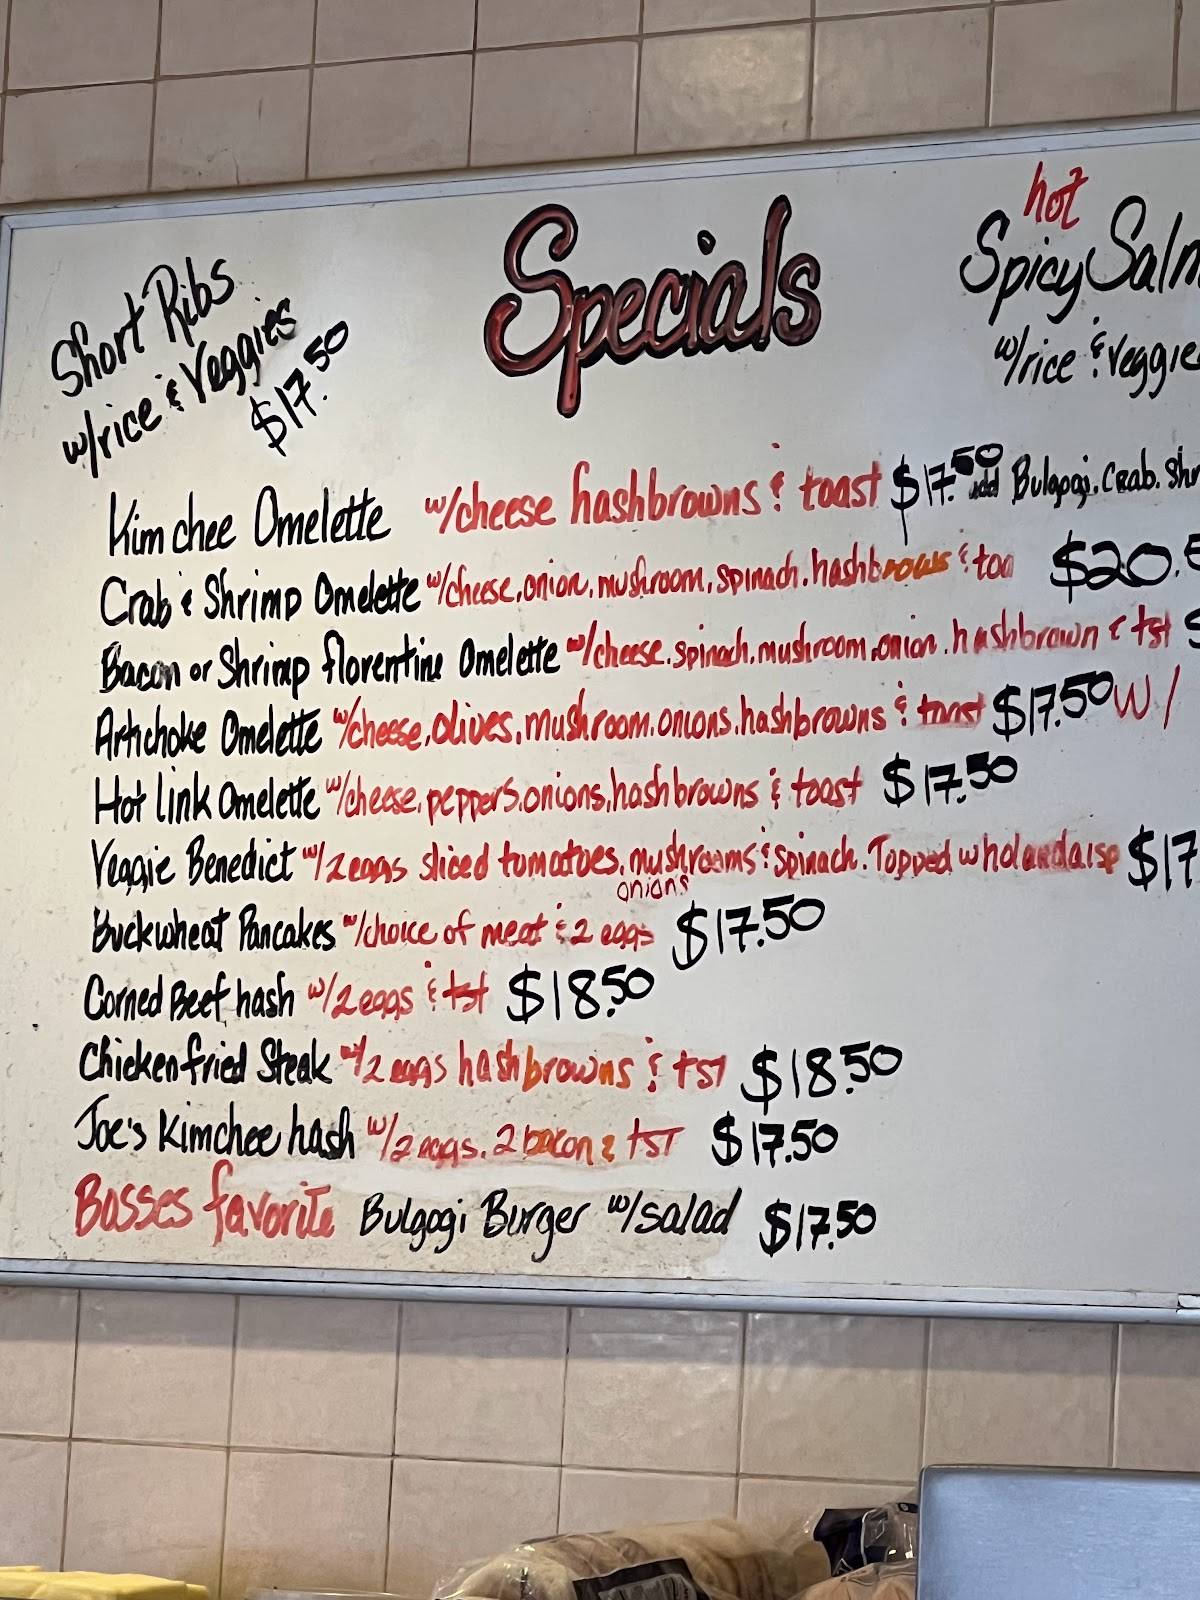 Specials
Short Ribs
w/rice & Veggies
$17.50
hot
Spicy Salm
w/rice & Veggie
Kim chee Omelette w/cheese hashbrowns & toast $17.50 add Bulgogi. Crab. Shr
Crab & Shrimp Omelette w/cheese, onion, mushroom, spinach. hashbrows & toa $20.5
Bacon or Shrimp florentine Omelette w/cheese. spinach, mushroom, onion. hashbrown & tst $
Artichoke Omelette w/cheese, olives, mushroom. onions, hashbrowns & toast $17.50 W/
Hot link Omelette w/cheese, peppers, onions, hashbrowns & toast $17.50
Veggie Benedict w/2 eggs sliced tomatoes, mushrooms & spinach. Topped w holandaise $17
onions
Buckwheat Pancakes w/choice of meat & 2 eggs $17.50
Corned Beef hash w/2 eggs & tst $18.50
Chicken fried Steak w/2 eggs hashbrowns & tst $18.50
Joe's Kimchee hash w/2 eggs. 2 bacon & tst $17.50
Bosses favorite Bulgogi Burger w/salad $17.50